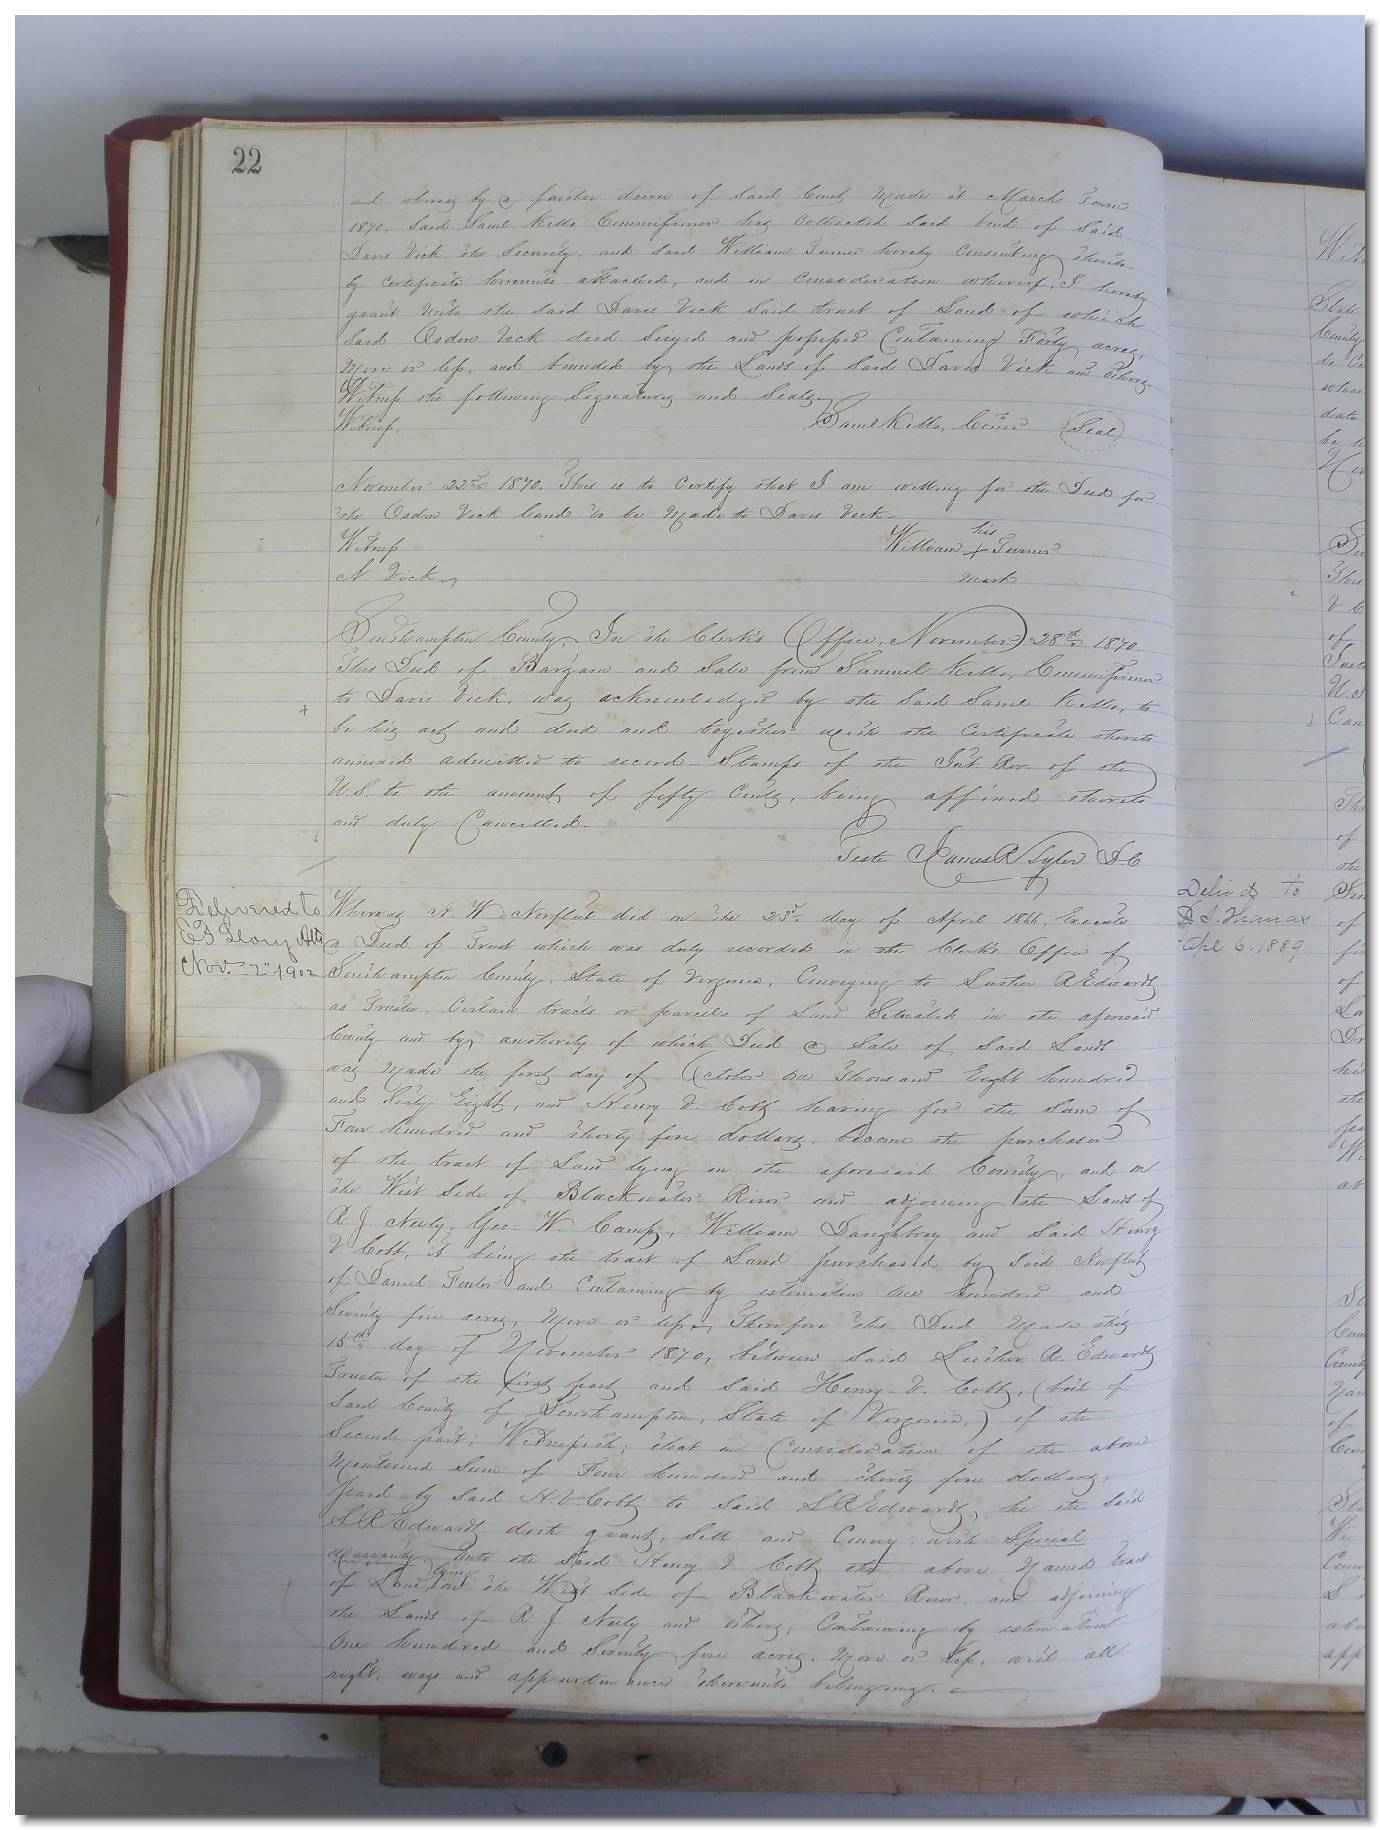 22
and whereas by a further decree of Said Court Made at March Term
1870, Said Saml Kello Commissioner has Collected Said bond of Said
Davis Vick, the Security, and Said William Turner hereby Consenting thereto
by Certificate hereunto attached, and in Consideration whereof, I hereby
grant Unto the Said Davis Vick Said tract of Land of which
Said Osden Vick died Seized and possessed Containing Forty acres,
More or less, and bounded by the Lands of Said Davis Vick and others
Witness the following Signatures and Seals.
Witness, Saml Kello, Comr (Seal)
November 22nd 1870. This is to Certify that I am willing for the Deed for
the Osden Vick Land to be Made to Davis Vick.
his
Witness William + Turner
N Vick mark
Southampton County, In the Clerk's Office, November 28th 1870
This Deed of Bargain and Sale from Samuel Kello, Commissioner
to Davis Vick, was acknowledged by the Said Saml Kello, to
be his act and deed and together with the Certificate thereto
annexed admitted to record - Stamps of the Int. Rev. of the
U.S. to the amount of fifty Cents, being affixed thereto
and duly Cancelled.
Teste James R Tyler D.C
Delivered to
E F Story Atty
Nov. 2" 1902
Whereas A W. Norfleet did on the 23d day of April 1866, Execute
a Deed of Trust which was duly recorded in the Clerk's Office of
Southampton County, State of Virginia, Conveying to Luther R Edwards
as Trustee, Certain tracts or parcels of Land Situated in the aforesaid
County and by authority of which Deed a Sale of Said Lands
was Made the first day of October one Thousand Eight hundred
and Sixty Eight, and Henry V. Cobb having for the Sum of
Four hundred and thirty five dollars, become the purchaser
of the tract of Land lying in the aforesaid County, and on
the West Side of Blackwater River and adjoining the Lands of
R J. Neely, Geo: W Camp, William Daughtrey and Said Henry
V Cobb, it being the tract of Land purchased by Said Norfleet
of Daniel Fowler and Containing by estimation one hundred and
Seventy five acres, More or less, Therefore this Deed Made this
15th day of November 1870, between Said Luther R. Edwards
Trustee of the first part and Said Henry V. Cobb, (both of
Said County of Southampton, State of Virginia,) of the
Second part; Witnesseth; that in Consideration of the above
Mentioned Sum of Four hundred and thirty five dollars,
paid by Said H.V. Cobb to Said L R Edwards, he the Said
L R Edwards doth grant, Sell and Convey, with Special
Warranty, Unto the Said Henry V Cobb the above Named tract
of Land lying on the West Side of Blackwater River, and adjoining
the Lands of R J Neely and others, Containing by estimation
One hundred and Seventy five acres, More or less, with all
right, ways and appurtenances thereunto belonging.
Delivd to
Apl 6. 1889